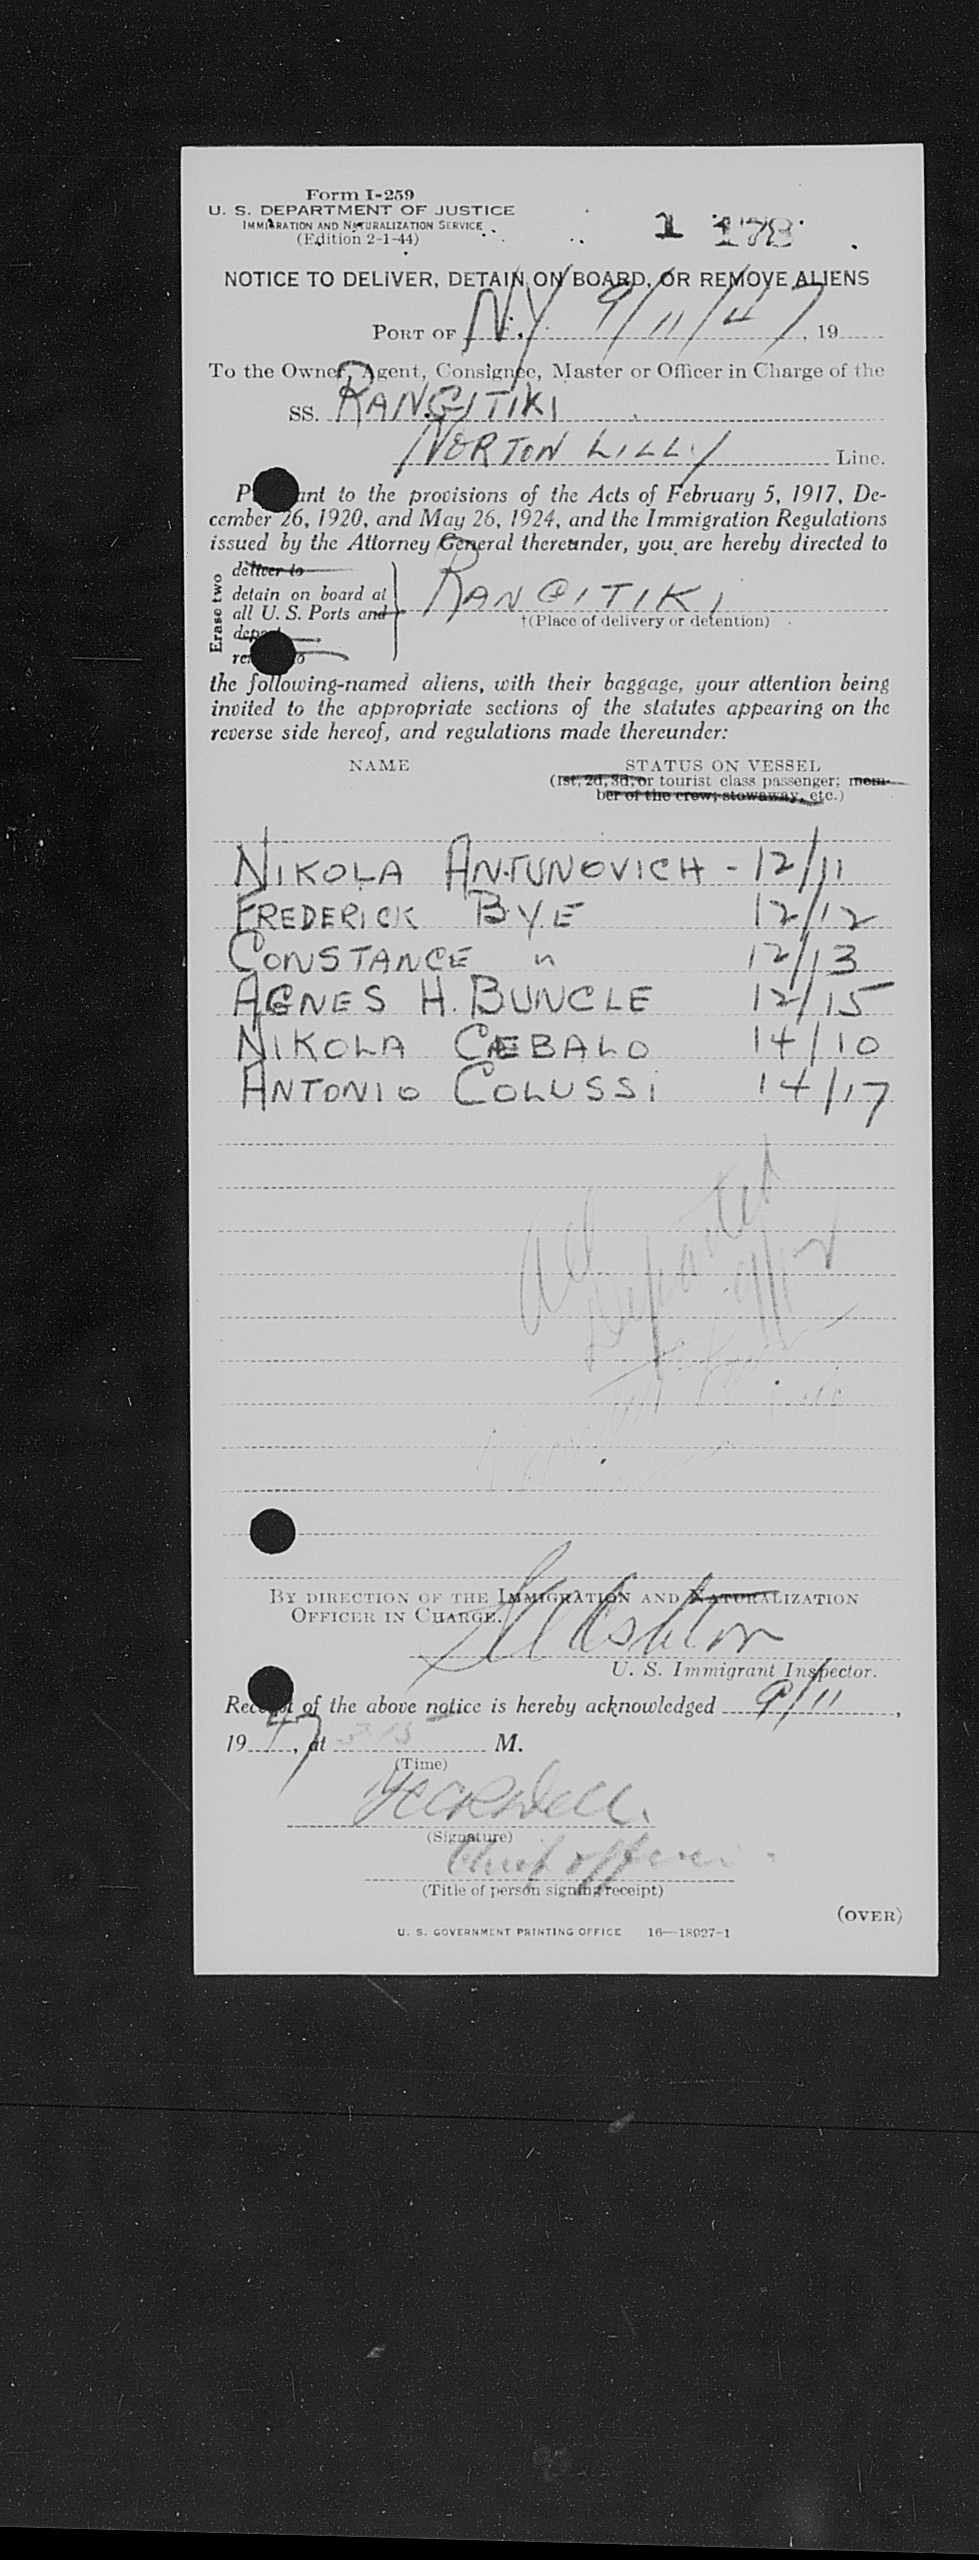 Form I-259
U. S. DEPARTMENT OF JUSTICE
IMMIGRATION AND NATURALIZATION SERVICE
(Edition 2-1-44)
1 178
NOTICE TO DELIVER, DETAIN ON BOARD, OR REMOVE ALIENS
PORT OF N.Y. 9/11/47, 19
To the Owner, Agent, Consignee, Master or Officer in Charge of the
SS. RANGITIKI
NORTON LILLY Line.
P ant to the provisions of the Acts of February 5, 1917, De-
cember 26, 1920, and May 26, 1924, and the Immigration Regulations
issued by the Attorney General thereunder, you are hereby directed to
Erase two
deliver to
detain on board at
all U. S. Ports and
RANGITIKI
†(Place of delivery or detention)
the following-named aliens, with their baggage, your attention being
invited to the appropriate sections of the statutes appearing on the
reverse side hereof, and regulations made thereunder:
NAME STATUS ON VESSEL
(1st, 2d, 3d, or tourist class passenger; mem-
ber of the crew; stowaway, etc.)
NIKOLA ANTUNOVICH - 12/11
FREDERICK BYE 12/12
CONSTANCE " 12/13
AGNES H. BUNCLE 12/15
NIKOLA CEBALO 14/10
ANTONIO COLUSSI 14/17
All
Departed
9/12
BY DIRECTION OF THE IMMIGRATION AND NATURALIZATION
OFFICER IN CHARGE.
Ashton
U. S. Immigrant Inspector.
Receipt of the above notice is hereby acknowledged 9/11,
1947, at M.
(Time)
(Signature)
Chief officer
(Title of person signing receipt)
(OVER)
U. S. GOVERNMENT PRINTING OFFICE 16—18027-1